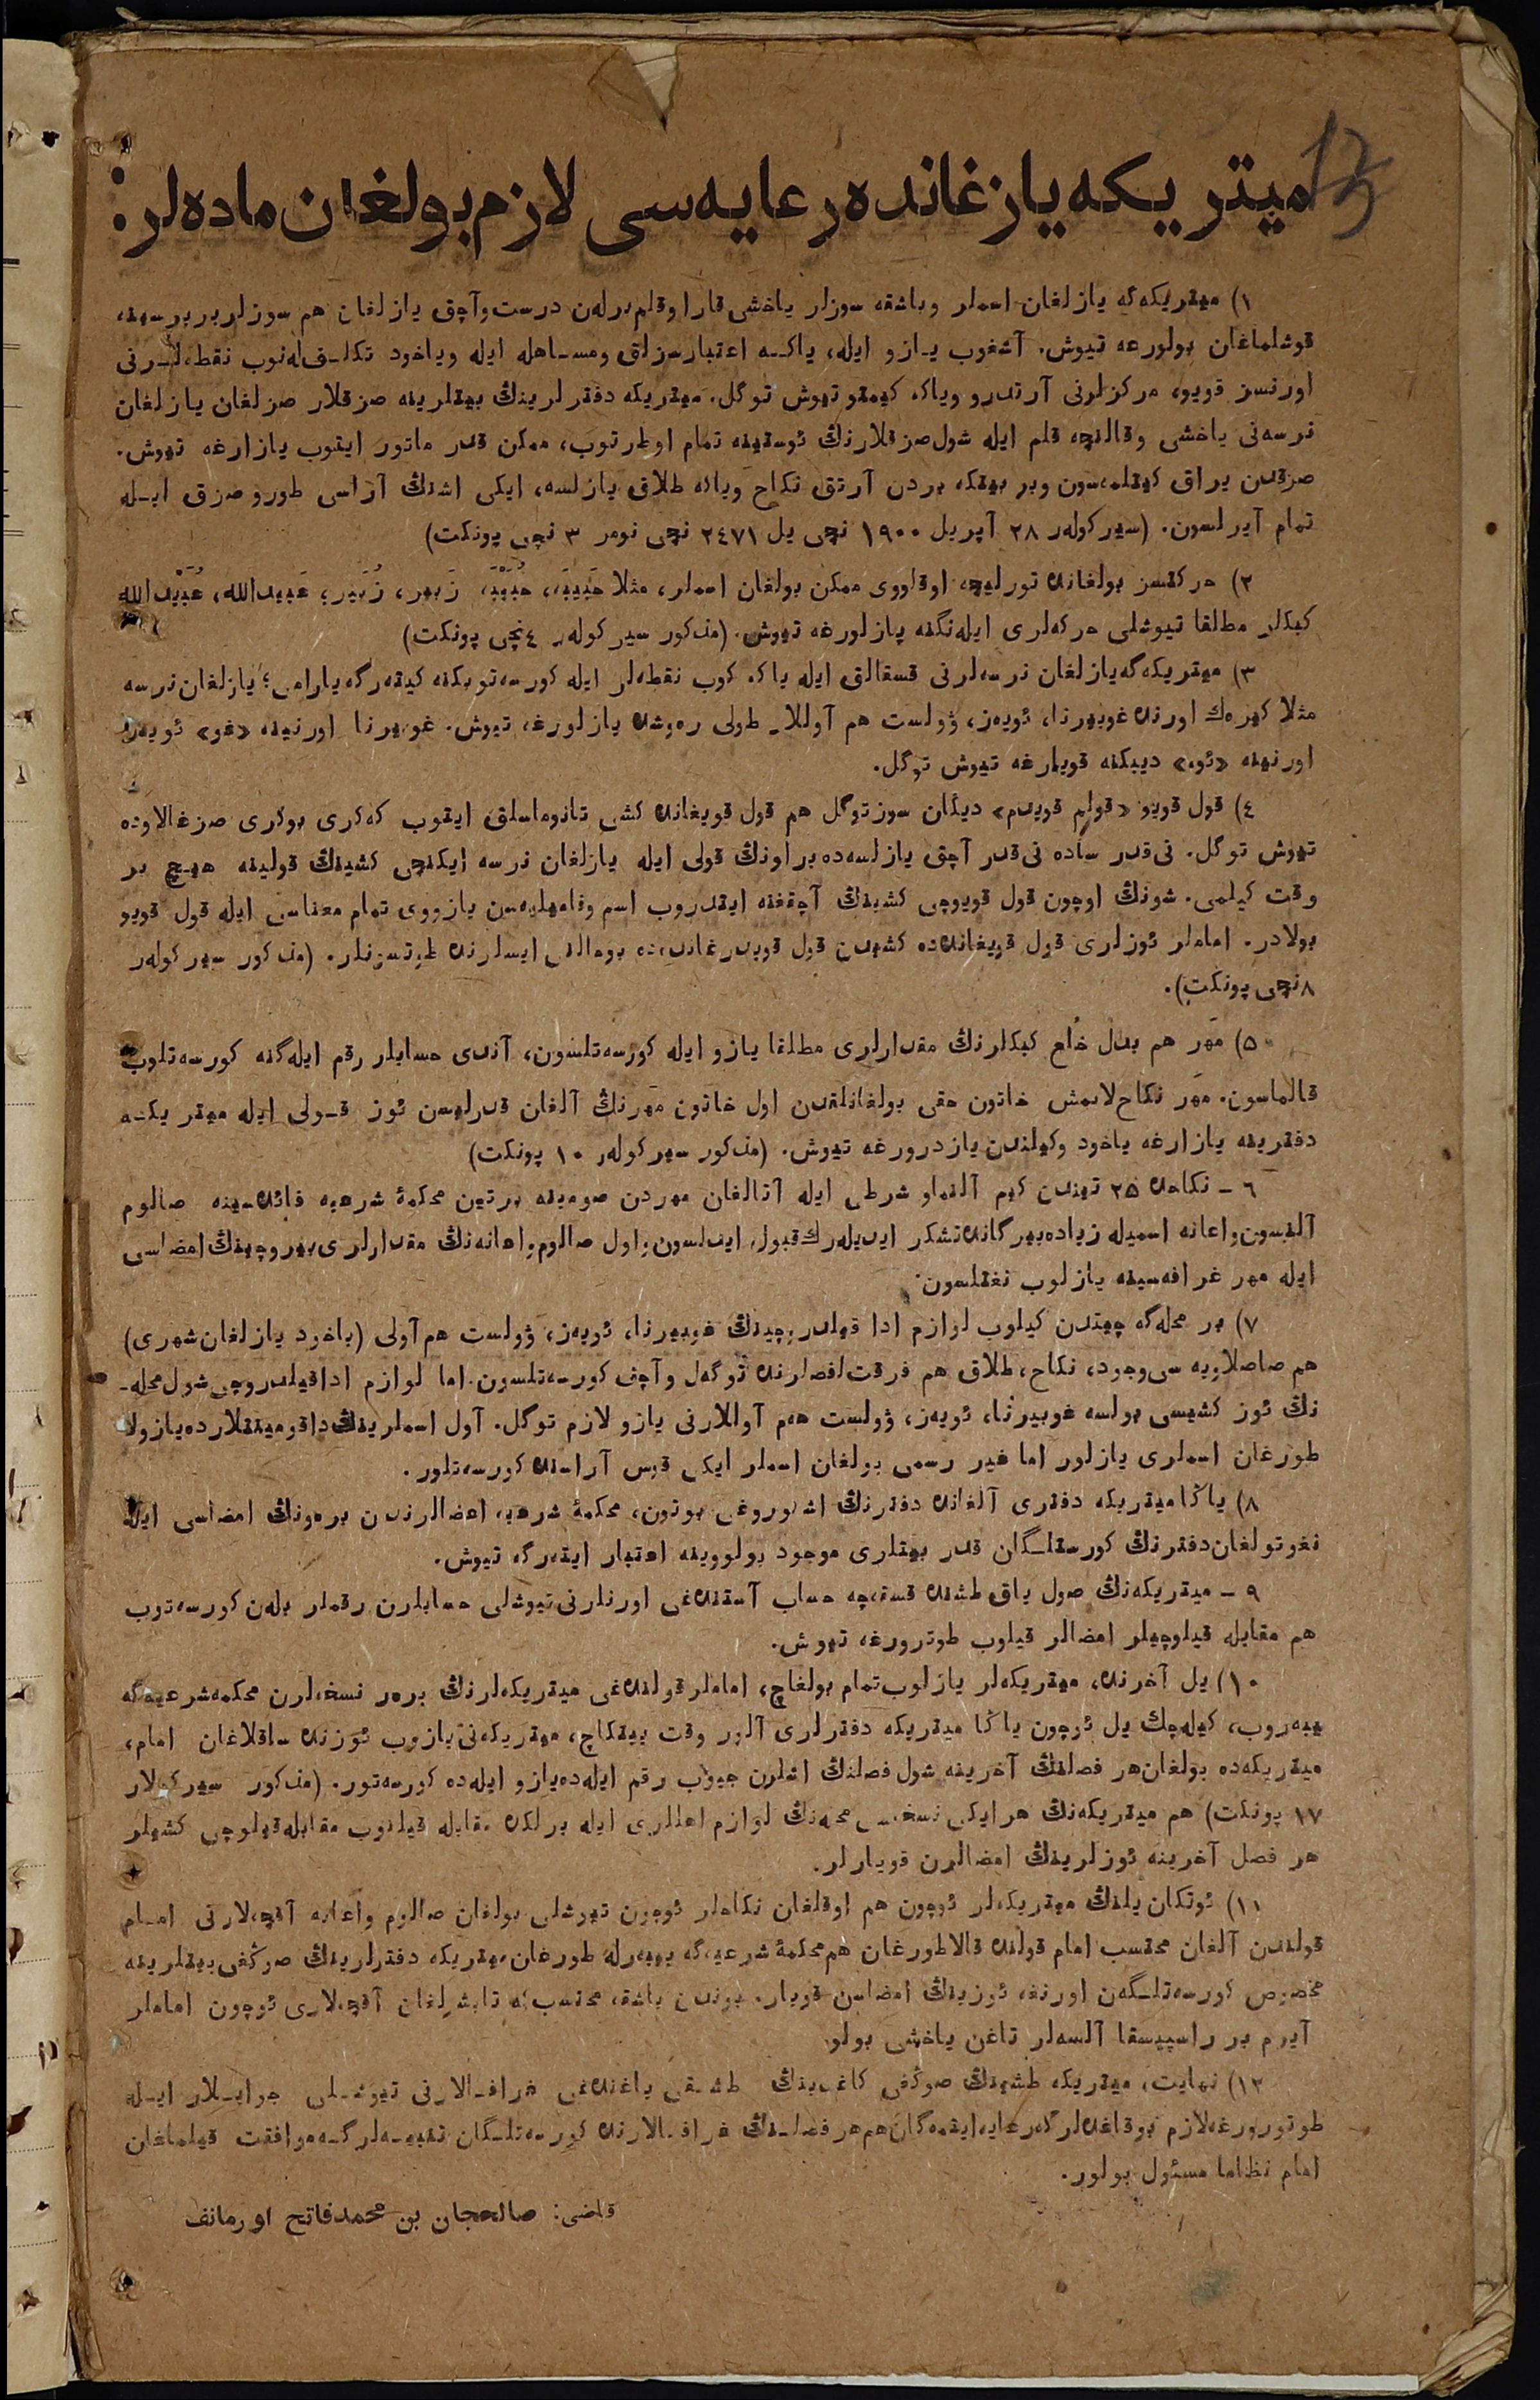 13
ميتريكه يازغانده رعايه‌سى لازم بولغان ماده‌لر:
١) ميتريكه‌گه يازلغان اسملر وباشقه سوزلر ياخشى قارا وقلم برله‌ن درست وآچق يازلغان هم سوزلر بربرسينه،
قوشلماغان بولورغه تيوش. آشغوب يازو ايله، ياكه اعتبارسزلق ومساهله ايله وياخود تكلف‌له‌نوب نقطه‌لرنى
اورنسز قويو، مركزلرنى آرتدرو وياكه كيمتو تيوش توگل. ميتريكه دفترلرينڭ بيتلرينه صزقلار صزلغان يازلغان
نرسه‌نى ياخشى وقالنچه قلم ايله شول صزقلارنڭ ئوستينه تمام اوطرتوب، ممكن قدر ماتور ايتوب يازارغه تيوش.
صزقدن يراق كيتلمه‌سون وبر بيتكه بردن آرتق نكاح وياكه طلاق يازلسه، ايكى اشنڭ آراسى طورو صزق ايله
تمام آيرلسون. (سيركولەر ٢٨ آپريل ١٩٠٠ نچى يل ٢٤٧١ نچى نومر ٣ نچى پونكت)
٢) حركتسز بولغانده تورليچه اوقلووى ممكن بولغان اسملر، مثلا حَبيبَه، حُبَيْبَه، زَبير، زُبَير؛ عَبيدالله، عُبَيْدالله
كبكلر مطلقا تيوشلى حركه‌لرى ايله‌نگنه يازلورغه تيوش. (مذكور سيركولەر ٤ نچى پونكت)
٣) ميتريكه‌گه يازلغان نرسه‌لرنى قسقالق ايله ياكه كوب نقطه‌لر ايله كورسه‌توبكنه كيته‌رگه يارامى؛ يازلغان نرسه
مثلا كيره‌ك اورنده غوبيرنا، ئويه‌ز، ۋولست هم آوللار طولى ره‌وشده يازلورغه تيوش. غوبيرنا اورنينه «غو» ئويه‌ز
اورنينه «ئوه» ديبكنه قويارغه تيوش توگل.
٤) قول قويو «قولم قويدم» ديگان سوز توگل هم قول قويغانده كشى تانوماسلق ايتوب كه‌كرى بوكرى صزغالاوده
تيوش توگل. نى‌قدر ساده نى‌قدر آچق يازلسه‌ده براونڭ قولى ايله يازلغان نرسه ايكنچى كشينڭ قولينه هيچ بر
وقت كيلمى. شونڭ اوچون قول قويوچى كشينڭ آچقغنه ايتدروب اسم وفاميليه‌سن يازووى تمام معناسى ايله قول قويو
بولادر. اماملر ئوزلرى قول قويغانده‌ده كشيدن قول قويدرغانده‌ده بوحالنى ايسلرنده طوتسونلر. (مذكور سيركولەر
٨ نچى پونكت).
٥) مَهَر هم بدل خُلع كبكلرنڭ مقدارلرى مطلقا يازو ايله كورسه‌تلسون، آندى حسابلر رقم ايله‌گنه كورسه‌تلوب
قالماسون. مَهَر نكاح‌لانمش خاتون حقى بولغانلقدن اول خاتون مَهَرنڭ آلغان قدرليسن ئوز قولى ايله ميتريكه
دفترينه يازارغه ياخود وكيلندن يازدرورغه تيوش. (مذكور سيركولەر ١٠ پونكت)
٦ - نكاحده ٢٥ تيندن كيم آلنماو شرطى ايله آتالغان مهردن صومينه برتين محكمهٔ شرعيه فائده‌سينه صالوم
آلنسون واعانه اسميله زياده بيرگانده تشكر ايديله‌رك قبول ايدلسون واول صالوم واعانه‌نڭ مقدارلرى بيروچينڭ امضاسى
ايله مهر غرافه‌سينه يازلوب نغتلسون.
٧) بر محله‌گه چيتدن كيلوب لوازم ادا قيلدروچينڭ غوبيرنا، ئويه‌ز، ۋولست هم آولى (ياخود يازلغان شهرى)
هم صاصلاويه سى وجود، نكاح، طلاق هم فرقت لفصلرنده توگه‌ل وآچق كورسه‌تلسون. اما لوازم ادا قيلدروچى شول محله‌-
نڭ ئوز كشيسى بولسه غوبيرنا، ئويه‌ز، ۋولست هم آوللارنى يازو لازم توگل. آول اسملرينڭ داقومينتلارده يازولا
طورغان اسملرى يازلور اما غير رسمى بولغان اسملر ايكى قوس آراسنده كورسه‌تلور.
٨) ياڭا ميتريكه دفترى آلغانده دفترنڭ اشنوروغى بوتون، محكمهٔ شرعيه اعضالرندن بره‌ونڭ امضاسى ايله
نغوتولغان دفترنڭ كورستلگان قدر بيتلرى موجود بولووينه اعتبار ايته‌رگه تيوش.
٩ - ميتريكه‌نڭ صول ياق طشنده قسقه‌چه حساب آستنده‌غى اورنلارنى تيوشلى حسابلرن رقملر بله‌ن كورسه‌توب
هم مقابله قيلوچيلر امضالر قيلوب طوترورغه تيوش.
١٠) يل آخرنده، ميتريكه‌لر يازلوب تمام بولغاچ، اماملر قولنده‌غى ميتريكه‌لرنڭ برەر نسخه‌لرن محكمه شرعيه‌گه
ييبه‌روب، كيله‌چك يل ئوچون ياڭا ميتريكه دفترلرى آلور وقت ييتكاچ، ميتريكه‌نى يازوب ئوزنده ساقلاغان امام،
ميتريكه‌ده بولغان هر فصلنڭ آخرينه شول فصلنڭ اشلرن جيوب رقم ايله‌ده يازو ايله‌ده كورسه‌تور. (مذكور سيركولار
١٧ پونكت) هم ميتريكه‌نڭ هر ايكى نسخه‌سى محله‌نڭ لوازم اهللرى ايله برلكده مقابله قيلنوب مقابله قيلوچى كشيلر
هر فصل آخرينه ئوزلرينڭ امضالرن قويارلر.
١١) ئوتكان يلنڭ ميتريكه‌لر ئوچون هم اوقلغان نكاحلر ئوچون تيوشلى بولغان صالوم واعانه آقچه‌لارنى امام
قولندن آلغان محتسب امام قولنده قالا طورغان هم محكمهٔ شرعيه‌گه ييبه‌رله طورغان ميتريكه دفترلرينڭ صوڭغى بيتلرينه
مخصوص كورسه‌تلگه‌ن اورنغه ئوزينڭ امضاسن قويار. بوندن باشقه محتسب‌كه تابشرلغان آقچه‌لارى ئوچون اماملر
آيرم بر راسپيسقا آلسه‌لر تاغن ياخشى بولو
١٢) نهايت، ميتريكه طشينڭ صوڭغى كاغدينڭ طشقى ياغنده‌غى غرافالارنى تيوشلى جوابلار ايله
طوتورورغه لازم بوقاغده‌لرگه رعايه ايتمه‌گان هم هر فصلنڭ غرافالارنده كورسه‌تلگان تنبيه‌لرگه موافقت قيلماغان
امام نظاما مسئول بولور.
قاضى: صالحجان بن محمدفاتح اورمانف